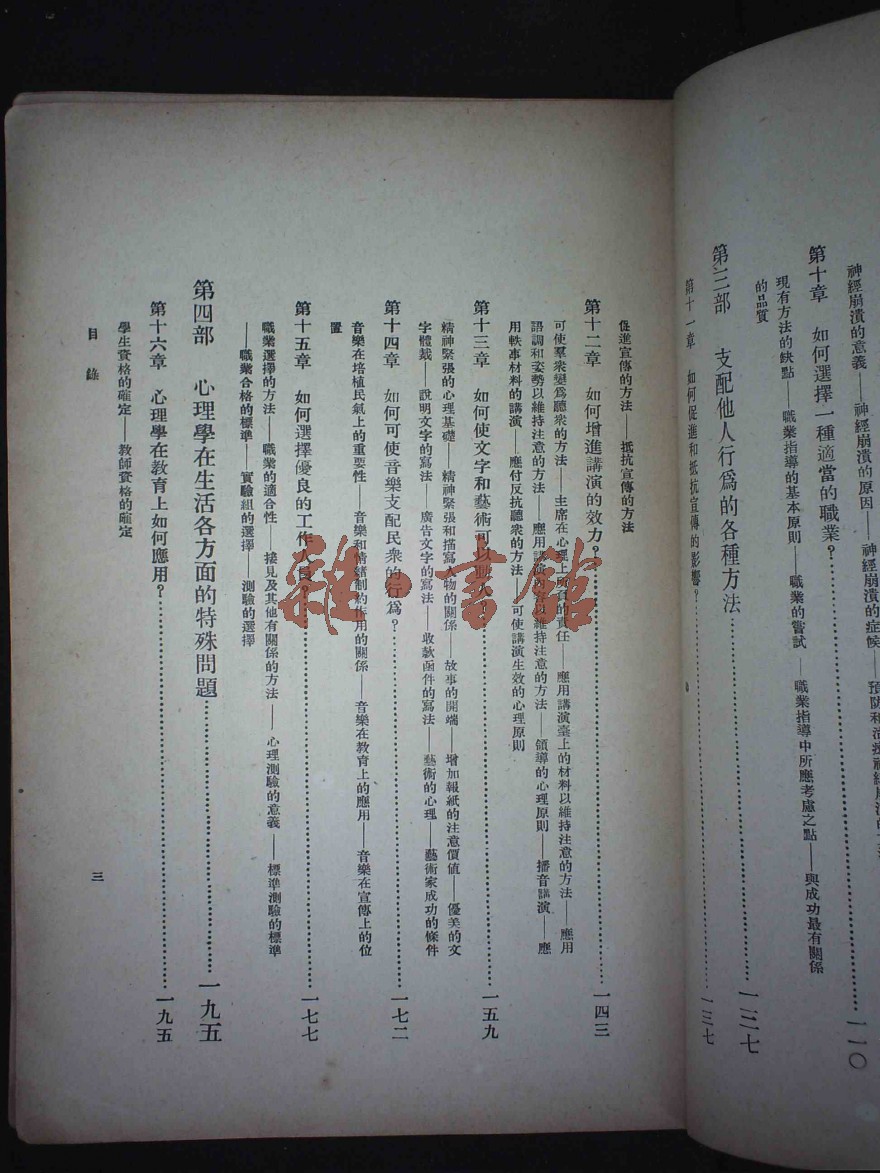 神經崩潰的意義——神經崩潰的原因——神經崩潰的症候——預防和治療神經崩潰的
第十章　如何選擇一種適當的職業？……一一〇
現有方法的缺點——職業指導的基本原則——職業的嘗試——職業指導中所應考慮之點——與成功最有關係
的品質
第三部　支配他人行爲的各種方法……一三七
第十一章　如何促進和抵抗宣傳的影響？……一三七
促進宣傳的方法——抵抗宣傳的方法
第十二章　如何增進講演的效力？……一四三
可使羣衆變爲聽衆的方法——主席在心理上所負的責任——應用講演臺上的材料以維持注意的方法——應用
語調和姿勢以維持注意的方法——應用講演內容以維持注意的方法　領導的心理原則——播音講演——應
用軼事材料的講演——應付反抗聽衆的方法——可使講演生效的心理原則
第十三章　如何使文字和藝術可以動人？……一五九
精神緊張的心理基礎——精神緊張和描寫人物的關係——故事的開端——增加報紙的注意價值——優美的文
字體裁——說明文字的寫法——廣告文字的寫法——收款函件的寫法——藝術的心理——藝術家成功的條件
第十四章　如何可使音樂支配民衆的行爲？……一七二
音樂在培植民氣上的重要性　音樂和情緒制約作用的關係——音樂在教育上的應用——音樂在宣傳上的位
置
第十五章　如何選擇優良的工作人員？……一七七
職業選擇的方法——職業的適合性　接見及其他有關係的方法——心理測驗的意義——標準測驗的標準
——職業合格的標準——實驗組的選擇——測驗的選擇
第四部　心理學在生活各方面的特殊問題……一九五
第十六章　心理學在教育上如何應用？……一九五
學生資格的確定——教師資格的確定
目錄
三
雜·書館